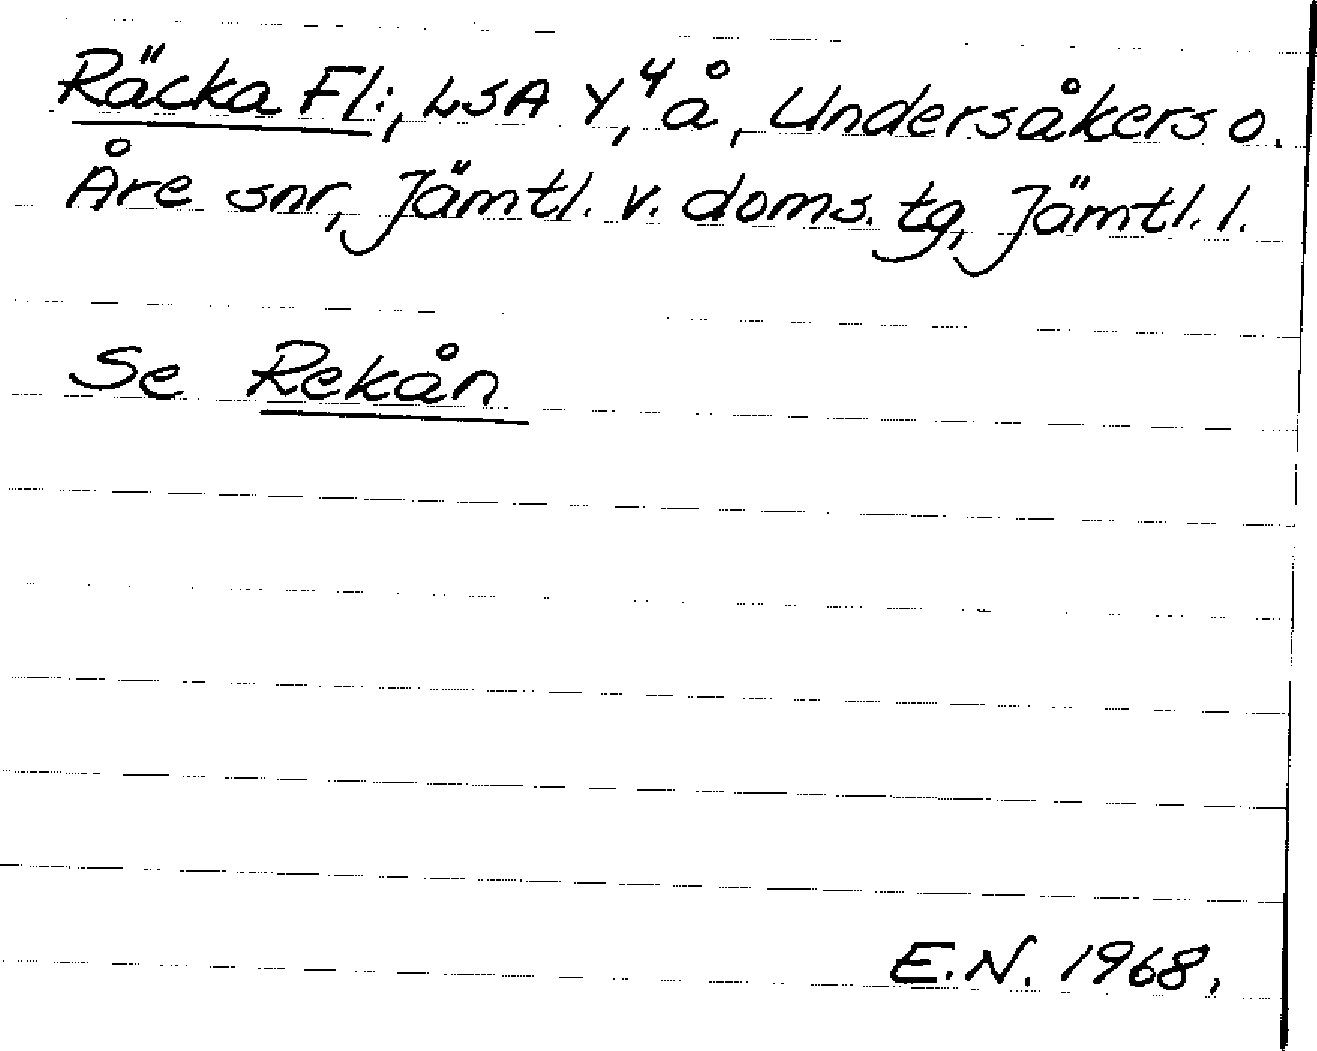 Räcka Fl:, LSA Y,⁴ å, Undersåkers o.
Åre snr, Jämtl. v. doms. tg, Jämtl. l.
Se Rekån
E.N. 1968,